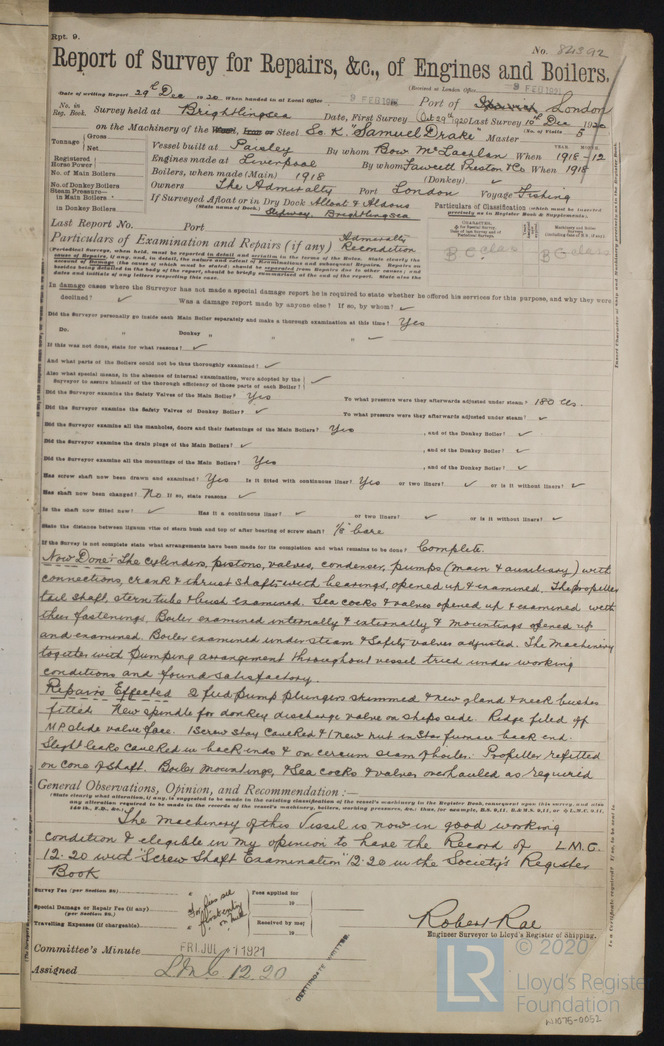 Rpt. 9.
No. 84392
Report of Survey for Repairs, &c., of Engines and Boilers.
(Received at London Office 9 FEB 1921
Date of writing Report 29th Dec 1920 When handed in at Local Office 9 FEB 1921 Port of London
No. in Reg. Book. Survey held at Brightlingsea Date, First Survey Oct 29th 1920 Last Survey 10th Dec 1920
(No. of Visits 5
on the Machinery of the Wood, Iron or Steel Sc. K. "Samuel Drake" Master
Tonnage Gross Net Vessel built at Paisley By whom Bow McLachlan When 1918-12
YEAR. MONTH.
Registered Horse Power Engines made at Liverpool By whom Fawcett Preston & Co When 1918
No. of Main Boilers Boilers, when made (Main) 1918 (Donkey) ✓
No. of Donkey Boilers Owners The Admiralty Port London Voyage Fishing
Steam Pressure in Main Boilers If Surveyed Afloat or in Dry Dock Aldous
in Donkey Boilers (State name of Dock.) Slipway. Brightlingsea
Particulars of Classification (which must be inserted precisely as in Register Book & Supplements).
Last Report No. Port
Particulars of Examination and Repairs (if any) Admiralty Recondition
B.C. class B G class
In damage cases where the Surveyor has not made a special damage report he is required to state whether he offered his services for this purpose, and why they were
declined? ✓ Was a damage report made by anyone else? If so, by whom? ✓
Did the Surveyor personally go inside each Main Boiler separately and make a thorough examination at this time? Yes
Do. " Donkey " " " " ✓
If this was not done, state for what reasons? ✓
And what parts of the Boilers could not be thus thoroughly examined? ✓
Also what special means, in the absence of internal examination, were adopted by the Surveyor to assure himself of the thorough efficiency of those parts of each Boiler? ✓
Did the Surveyor examine the Safety Valves of the Main Boiler? Yes To what pressure were they afterwards adjusted under steam? 180 lbs.
Did the Surveyor examine the Safety Valves of Donkey Boiler? ✓ To what pressure were they afterwards adjusted under steam? ✓
Did the Surveyor examine all the manholes, doors and their fastenings of the Main Boilers? Yes, and of the Donkey Boiler? ✓
Did the Surveyor examine the drain plugs of the Main Boilers? ✓, and of the Donkey Boiler? ✓
Did the Surveyor examine all the mountings of the Main Boilers? Yes, and of the Donkey Boiler? ✓
Has screw shaft now been drawn and examined? Yes Is it fitted with continuous liner? Yes or two liners? ✓ or is it without liners? ✓
Has shaft now been changed? No If so, state reasons ✓
Is the shaft now fitted new? ✓ Has it a continuous liner? ✓ or two liners? ✓ or is it without liners? ✓
State the distance between lignum vitæ of stern bush and top of after bearing of screw shaft? 1/8" bare
If the Survey is not complete state what arrangements have been made for its completion and what remains to be done? Complete.
Now Done:- The cylinders, pistons, valves, condenser, pumps (main & auxiliary) with
connections, crank & thrust shafts with bearings, opened up & examined. The propeller
tail shaft, stern tube & bush examined. Sea cocks & valves opened up & examined with
their fastenings. Boiler examined internally & externally & mountings opened up
and examined. Boiler examined under steam & Safety valves adjusted. The Machinery
together with Pumping arrangement throughout vessel tried under working
conditions and found satisfactory.
Repairs Effected 2 feed pump plungers skimmed & new gland & neck bushes
fitted. New spindle for donkey discharge valve on ships side. Ridge filed off
M.P. slide valve face. 1 Screw stay caulked & 1 new nut in star furnace back end.
Slight leaks caulked in back ends & on circum seam of boiler. Propeller refitted
on cone of shaft. Boiler mountings, & Sea cocks & valves overhauled as required
General Observations, Opinion, and Recommendation :—
The Machinery of this Vessel is now in good working
condition & elegible in my opinion to have the Record of L.M.C.
12.20 with "Screw Shaft Examination" 12.20 in the Society's Register
Book
Survey Fee (per Section 28)
Special Damage or Repair Fee (if any) (per Section 28.)
Travelling Expenses (if chargeable)
Fees applied for 19
Received by me; 19
Robert Rae
Engineer Surveyor to Lloyd's Register of Shipping.
Committee's Minute FRI. JUL 1 1921
Assigned LMC 12.20
CERTIFICATE WRITTEN.
© 2020
LR Lloyd's Register Foundation
W1075-0052